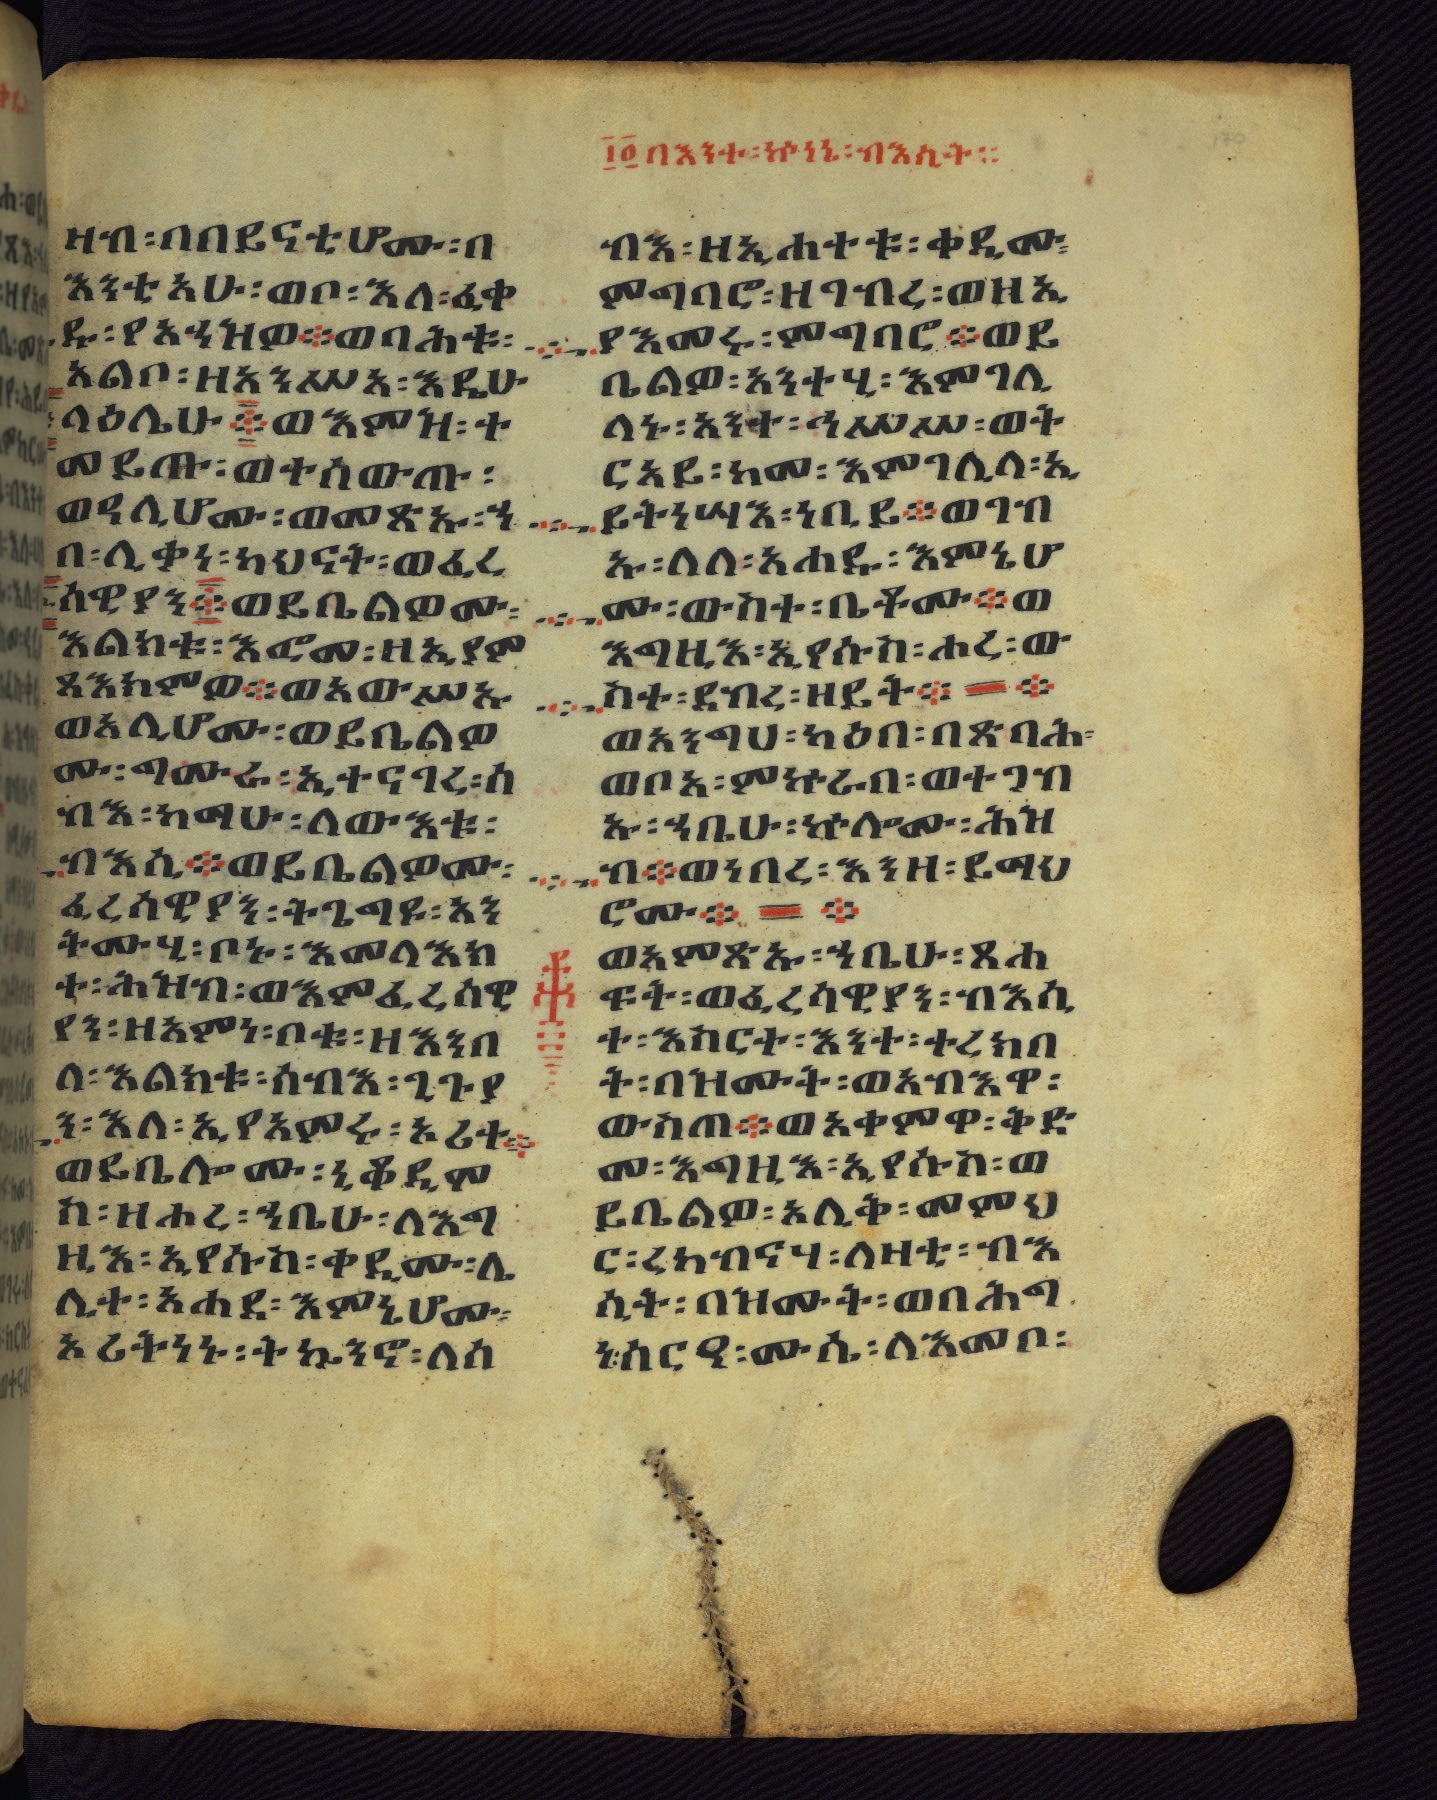 ፲፬በእንተ፡ኵነኔ፡ብእሲት፨
ዘብ፡በበይናቲሆሙ፡በ
እንቲአሁ፡ወቦ፡እለ፡ፈቀ
ዱ፡የአኀዝዎ፨ወባሕቱ፡
አልቦ፡ዘአንሥአ፡እዴሁ
ላዕሌሁ፨ወእምዝ፡ተ
መይጡ፡ወተሰውጡ፡
ወዓሊሆሙ፡ወመጽኡ፡ኀ
በ፡ሊቃነ፡ካህናት፡ወፈረ
ሳዊያን፨ወይቤልዎሙ፡
እልክቱ፡እፎመ፡ዘኢያም
ጻእክምዎ፨ወአውሥኡ
ወአሊሆሙ፡ወይቤልዎ
ሙ፡ግሙራ፡ኢተናገረ፡ሰ
ብእ፡ከማሁ፡ለውእቱ፡
ብእሲ፨ወይቤልዎሙ፡
ፈረሳዊያን፡ትጌግዩ፡አን
ትሙሂ፡ቦኑ፡እመላእክ
ተ፡ሕዝብ፡ወእምፈረሳዊ
ያን፡ዘአምነ፡ቦቱ፡ዘእንበ
ለ፡እልክቱ፡ሰብእ፡ጊጉያ
ን፡እለ፡ኢየአምሩ፡ኦሪተ፨
ወይቤሎሙ፡ኒቆዲሞ
ስ፡ዘሖረ፡ኀቤሁ፡ለእግ
ዚእ፡ኢየሱስ፡ቀዲሙ፡ሌ
ሊተ፡አሐዱ፡እምኔሆሙ፡
ኦሪትነኑ፡ትኴንኖ፡ለሰ
ብእ፡ዘኢሐተቱ፡ቀዲሙ፡
ምግባሮ፡ዘገብረ፡ወዘኢ
ያእመሩ፡ምግባሮ፨ወይ
ቤልዎ፡አንተሂ፡እምገሊ
ላኑ፡አንተ፡ኀሥሥ፡ወት
ርአይ፡ከመ፡እምገሊላ፡ኢ
ይትነሣእ፡ነቢይ፨ወገብ
ኡ፡ለለ፡አሐዱ፡እምኔሆ
ሙ፡ውስተ፡ቤቶሙ፨ወ
እግዚእ፡ኢየሱስ፡ሖረ፡ው
ስተ፡ደብረ፡ዘይት፨
ወአንግሀ፡ካዕበ፡በጽባሕ፡
ወቦአ፡ምኵራበ፡ወተጋብ
ኡ፡ኀቤሁ፡ኵሎሙ፡ሕዝ
ብ፨ወነበረ፡እንዘ፡ይሜህ
ሮሙ፨
ወአምጽኡ፡ኀቤሁ፡ጸሐ
ፍት፡ወፈረሳዊያን፡ብእሲ
ተ፡እስርት፡እንተ፡ተረክበ
ት፡በዝሙት፡ወአብእዋ፡
ውስጠ፨ወአቀምዋ፡ቅድ
መ፡እግዚእ፡ኢየሱስ፡ወ
ይቤልዎ፡ኦሊቅ፡መምህ
ር፡ረከብናሃ፡ለዛቲ፡ብእ
ሲት፡በዝሙት፡ወበሕግ
ነ፡ሰርዐ፡ሙሴ፡ለእመቦ፡